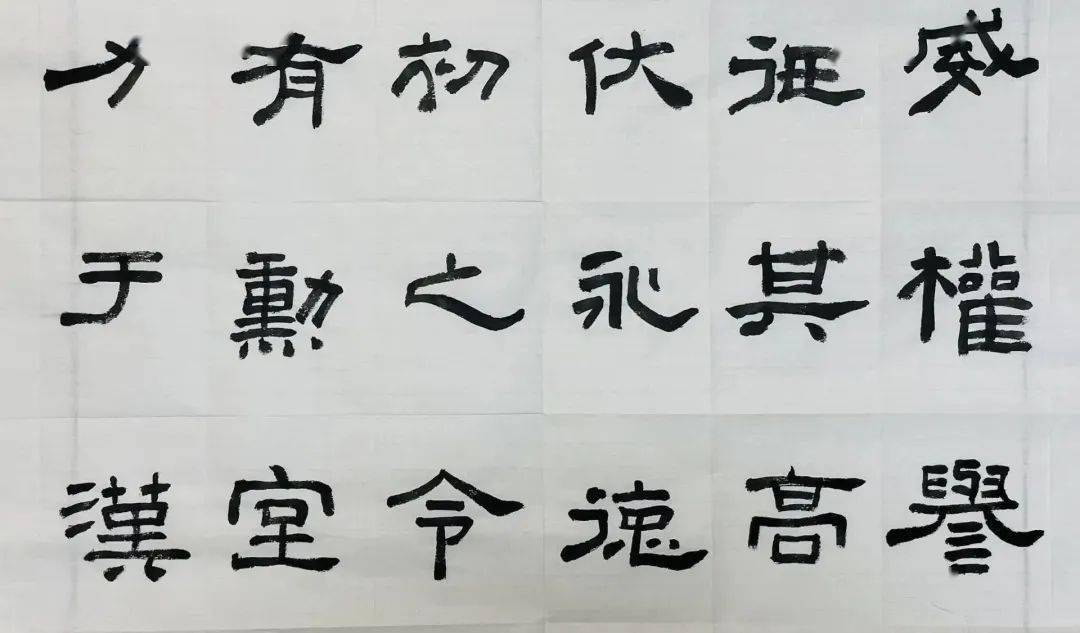 威權譽
其高
伏永德
初之令
有勳室
力于漢